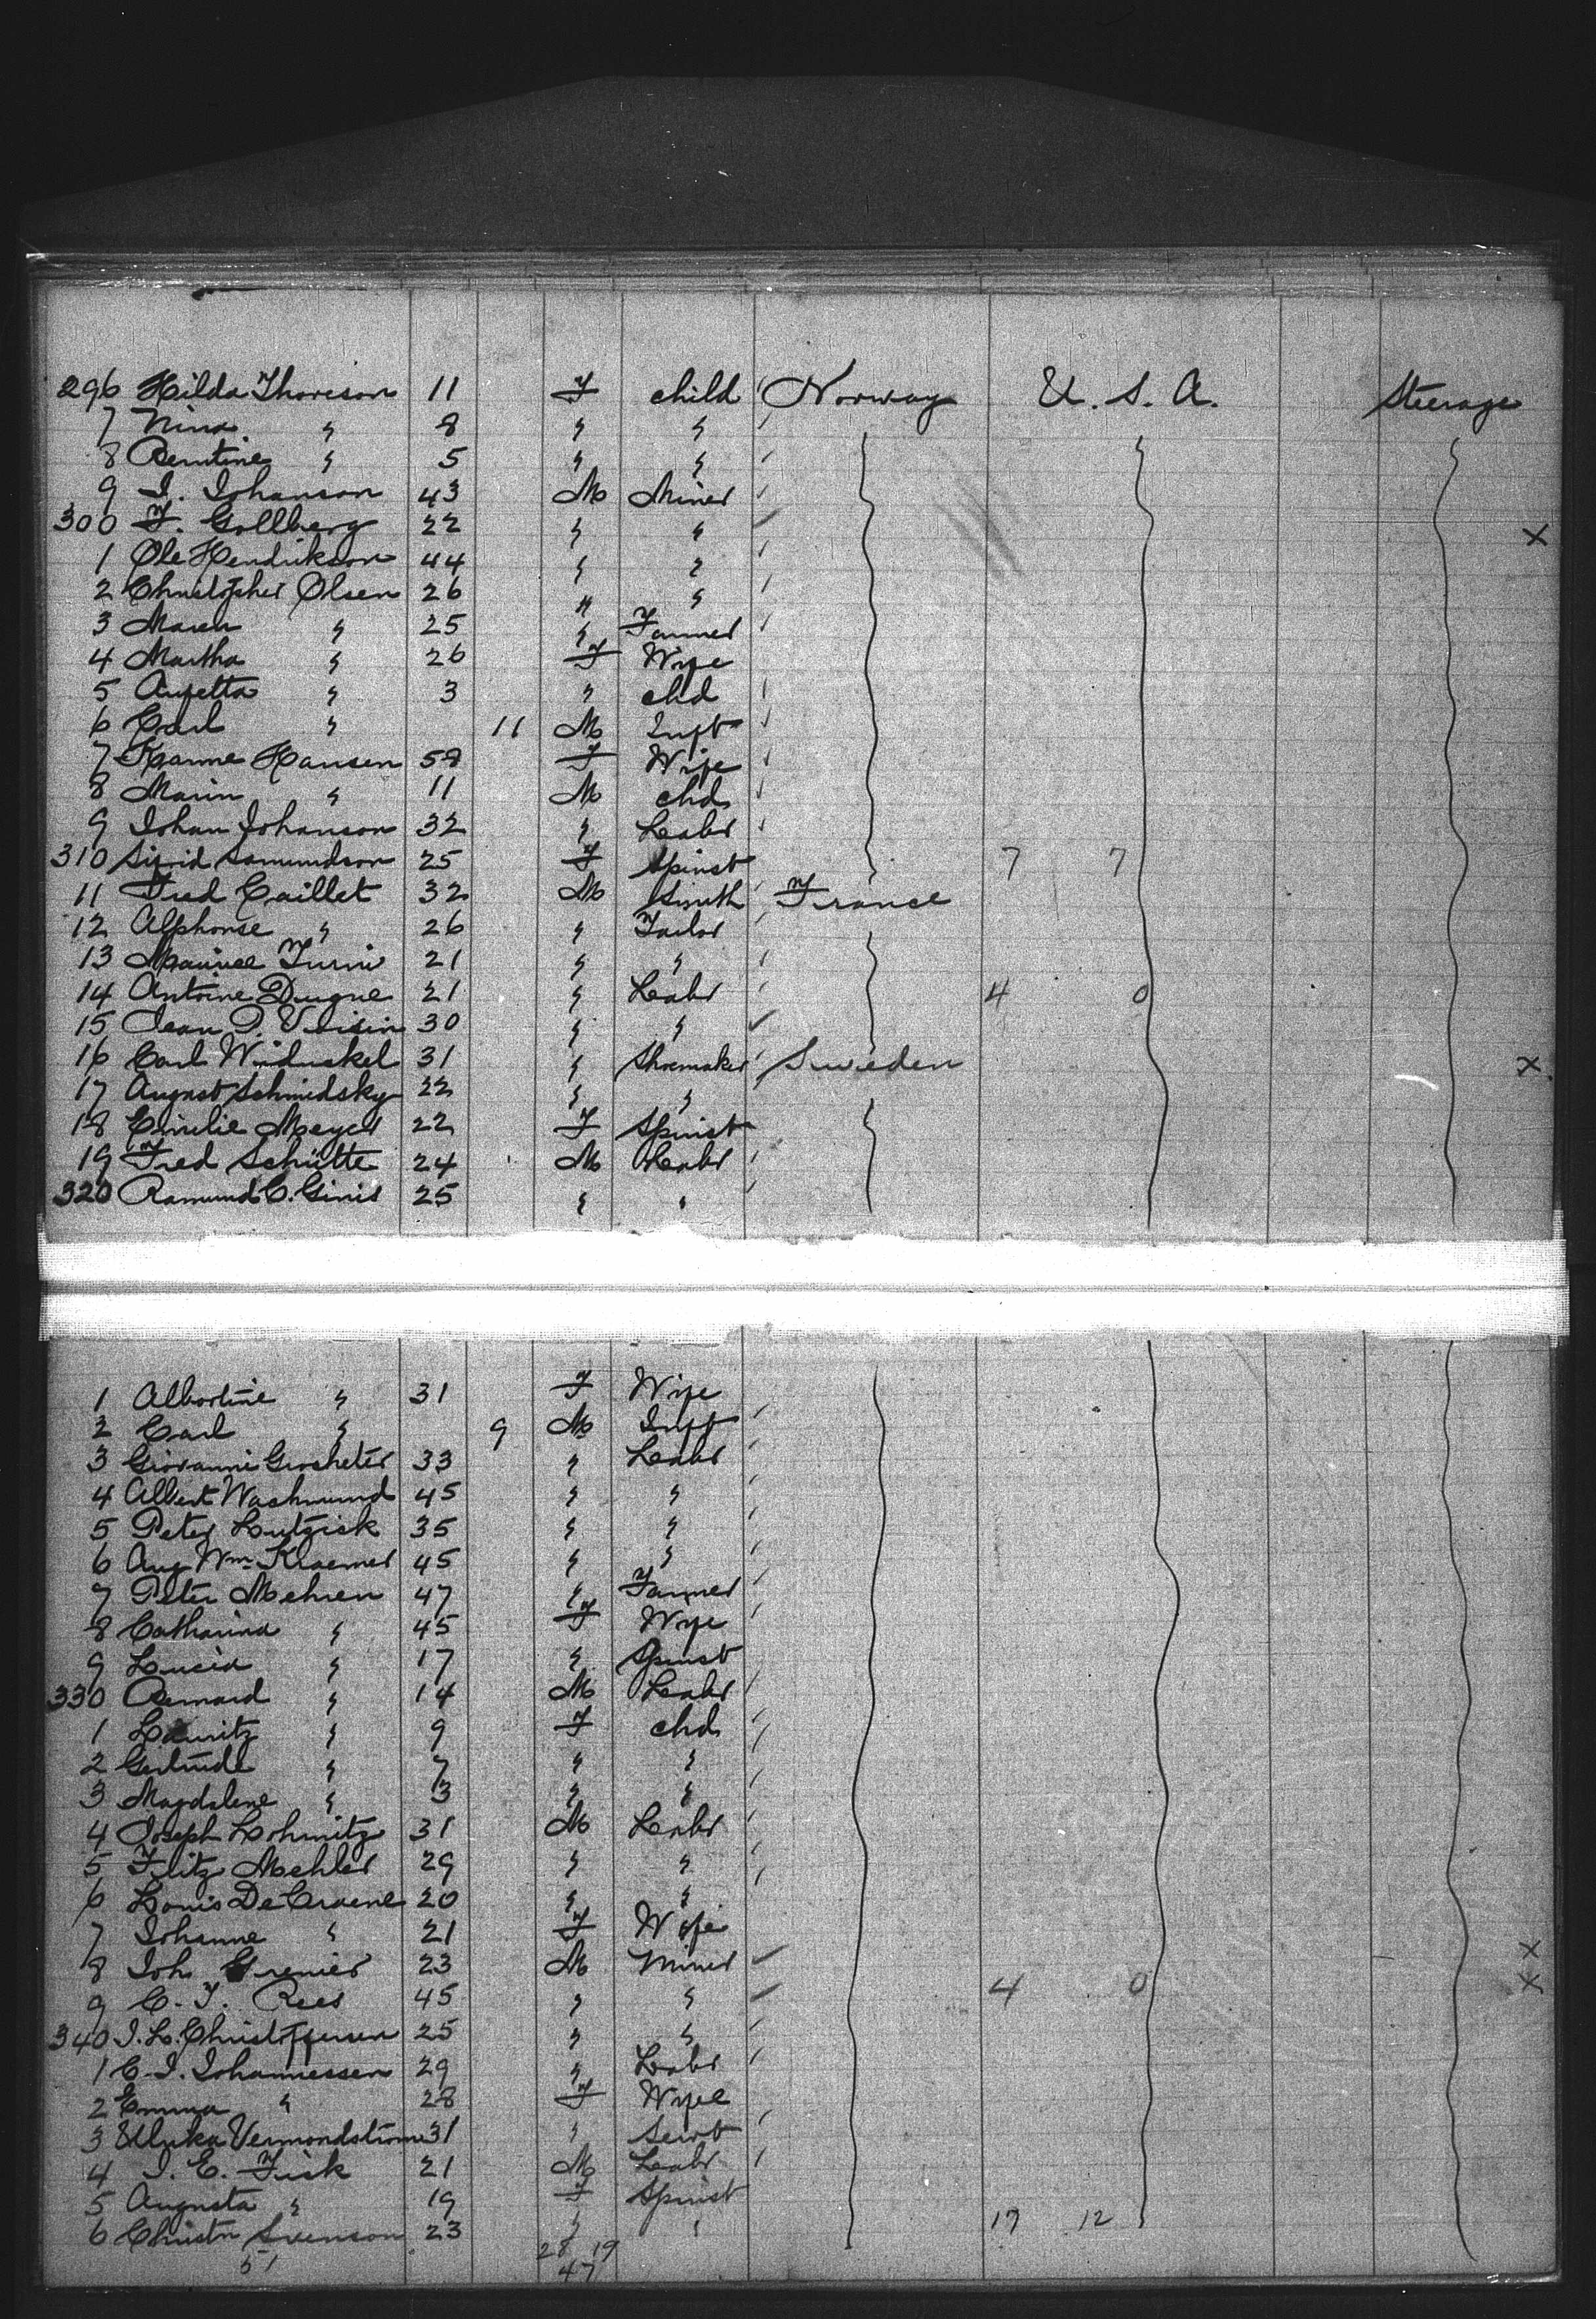 296 Hilda Thoreson 11 F child Norway U. S. A. Steerage
7 Nina " 8 " "
8 Berntine " 5 " "
9 I. Johanson 43 M Miner
300 F. Gollberg 22 " " x
1 Ole Hendrikson 44 " "
2 Christopher Olsen 26 " "
3 Maren " 25 " Farmer
4 Martha " 26 F Wife
5 " 3 " chd
6 Carl " 11 M Inft
7 Hanne Hansen 58 F Wife
8 Marin " 11 M chd
9 Johan Johanson 32 " Labr
310 Sigrid Samundson 25 F Spinst 7 7
11 Fred Caillet 32 M Smith France
12 Alphonse " 26 " Tailor
13 Maurice Turin 21 " "
14 Antoine Dugne 21 " Labr 4 0
15 Jean P. Voisin 30 " "
16 Carl Widuskel 31 " Shoemaker Sweden x
17 August Schmidsky 22 " "
18 Emilie Meyer 22 F Spinst
19 Fred Schütte 24 M Labr
320 Ramund C. Ginis 25 " "
1 Albertine " 31 F Wife
2 Carl " 9 M Inft
3 Giovanni Grosheter 33 " Labr
4 Albert Washmund 45 " "
5 Peter Lutzisk 35 " "
6 Aug Wm Kraemer 45 " "
7 Peter Mehren 47 " Farmer
8 Catharina " 45 F Wife
9 Lucia " 17 " Spinst
330 Bernard " 14 M Labr
1 Lauritz " 9 F chd
2 Gertrude " 7 " "
3 Magdalene " 3 " "
4 Joseph Lohmitz 31 M Labr
5 Fritz Mehler 29 " "
6 Louis De Craene 20 " "
7 Johanne " 21 F Wife
8 Joh Grenier 23 M Miner x
9 C. T. Rees 45 " " 4 0 x
340 I. L. Christoffersen 25 " "
1 C. I. Johannessen 29 " Labr
2 Emma " 28 F Wife
3 Ulrika Vermondstrom 31 " Servt
4 I. E. Fisk 21 M Labr
5 Augusta " 19 F Spinst
6 Christn Svenson 23 " " 17 12
51 28 19
47